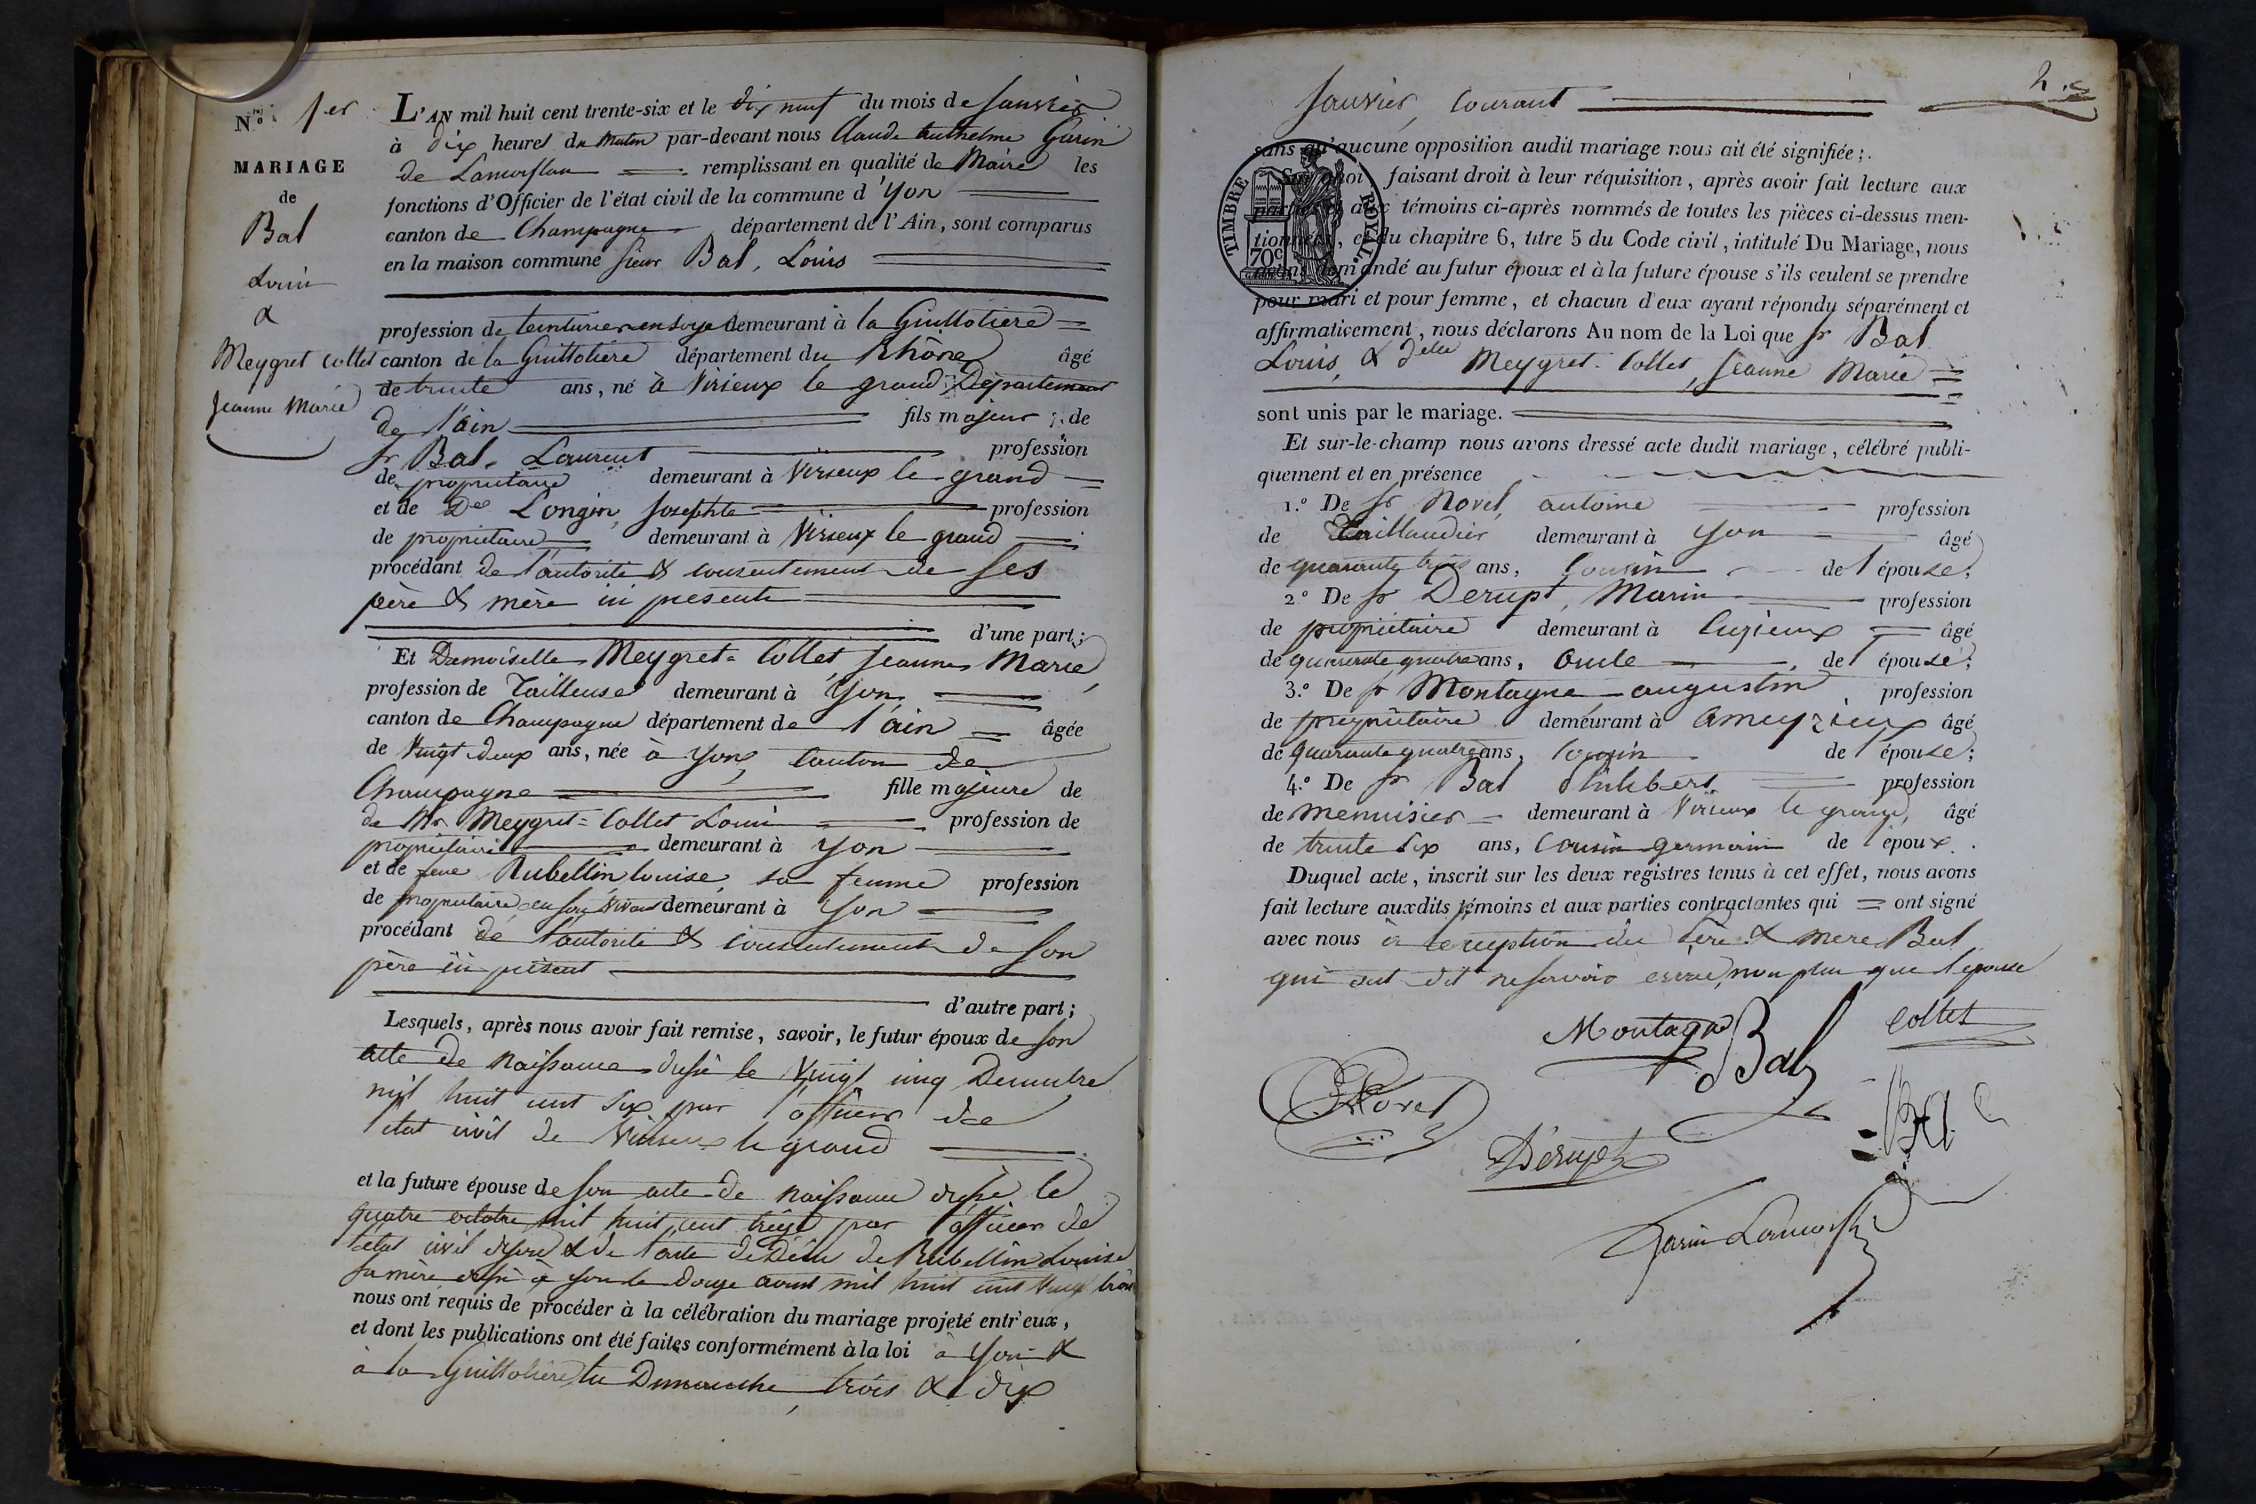 N.º 1.er
MARIAGE
de
Bal
Louis
&
Meygret Collet
Jeanne Marie
L'AN mil huit cent trente-six et le dix neuf du mois de Janvier
à dix heures du matin par-devant nous Claude Anthelme Garin
de Lamorflan remplissant en qualité de Maire les
fonctions d'Officier de l'état civil de la commune d'Yon
canton de Champagne département de l'Ain, sont comparus
en la maison commune Sieur Bal, Louis
profession de teinturier en soye demeurant à la Guillotière
canton de la Guillotière département du Rhône âgé
de trente ans, né à Virieux le grand Département
de l'ain fils majeur de
Sr Bal, Laurent profession
de propriétaire demeurant à Virieux le grand
et de De Longin, Josephte profession
de propriétaire demeurant à Virieux le grand
procédant de l'autorité & consentement de ses
père & mère ici présents
d'une part;
Et Demoiselle Meygret=Collet, Jeanne Marie
profession de Tailleuse demeurant à Yon,
canton de Champagne département de l'ain âgée
de Vingt deux ans, née à Yon, Canton de
Champagne fille majeure de
de Mr Meygret=Collet Louis profession de
propriétaire demeurant à Yon
et de feue Rubellin louise, sa femme profession
de propriétaire en son vivant demeurant à Yon
procédant de l'autorité & consentement de son
père ici présent
d'autre part;
Lesquels, après nous avoir fait remise, savoir, le futur époux de son
acte de naissance dressé le Vingt cinq Décembre
mil huit cent six par l'officier de
l'état civil de Virieux le grand
et la future épouse de son acte de naissance dressé le
quatre octobre mil huit cent treize par l'officier de
l'état civil & de l'acte de Décès de Rubellin Louise
sa mère dressé à Yon le douze avout mil huit cent Vingt trois
nous ont requis de procéder à la célébration du mariage projeté entr'eux,
et dont les publications ont été faites conformément à la loi à Yon &
à la Guillotière les Dimanche trois & dix
2.
Janvier, Courant
sans qu'aucune opposition audit mariage nous ait été signifiée;
TIMBRE ROYAL.
70c
Sur quoi faisant droit à leur réquisition, après avoir fait lecture aux
parties et aux témoins ci-après nommés de toutes les pièces ci-dessus men-
tionnées, et du chapitre 6, titre 5 du Code civil, intitulé Du Mariage, nous
avons demandé au futur époux et à la future épouse s'ils veulent se prendre
pour mari et pour femme, et chacun d'eux ayant répondu séparément et
affirmativement, nous déclarons Au nom de la Loi que Sr Bal
Louis, & delle Meygret=Collet, Jeanne Marie
sont unis par le mariage.
Et sur-le-champ nous avons dressé acte dudit mariage, célébré publi-
quement et en présence
1.º De Sr Novel, antoine profession
de Taillandier demeurant à Yon âgé
de quarante trois ans, Cousin de l'épouse;
2.º De Sr Derupt, Marin profession
de propriétaire demeurant à Luzieux âgé
de quarante quatre ans, Oncle de l'épouse;
3.º De Sr Montagne, augustin profession
de propriétaire demeurant à Ameyzieux âgé
de quarante quatre ans, Cousin de l'épouse;
4.º De Sr Bal Philibert profession
de menuisier demeurant à Virieux le grand, âgé
de trente six ans, Cousin germain de l'époux.
Duquel acte, inscrit sur les deux registres tenus à cet effet, nous avons
fait lecture auxdits témoins et aux parties contractantes qui ont signé
avec nous à l'exception du père & mère Bal
qui ont dit ne savoir écrire, non plus que l'épouse
Montagne Bal Collet
Novel
Bal
Dérupt
Garin Lamorflan